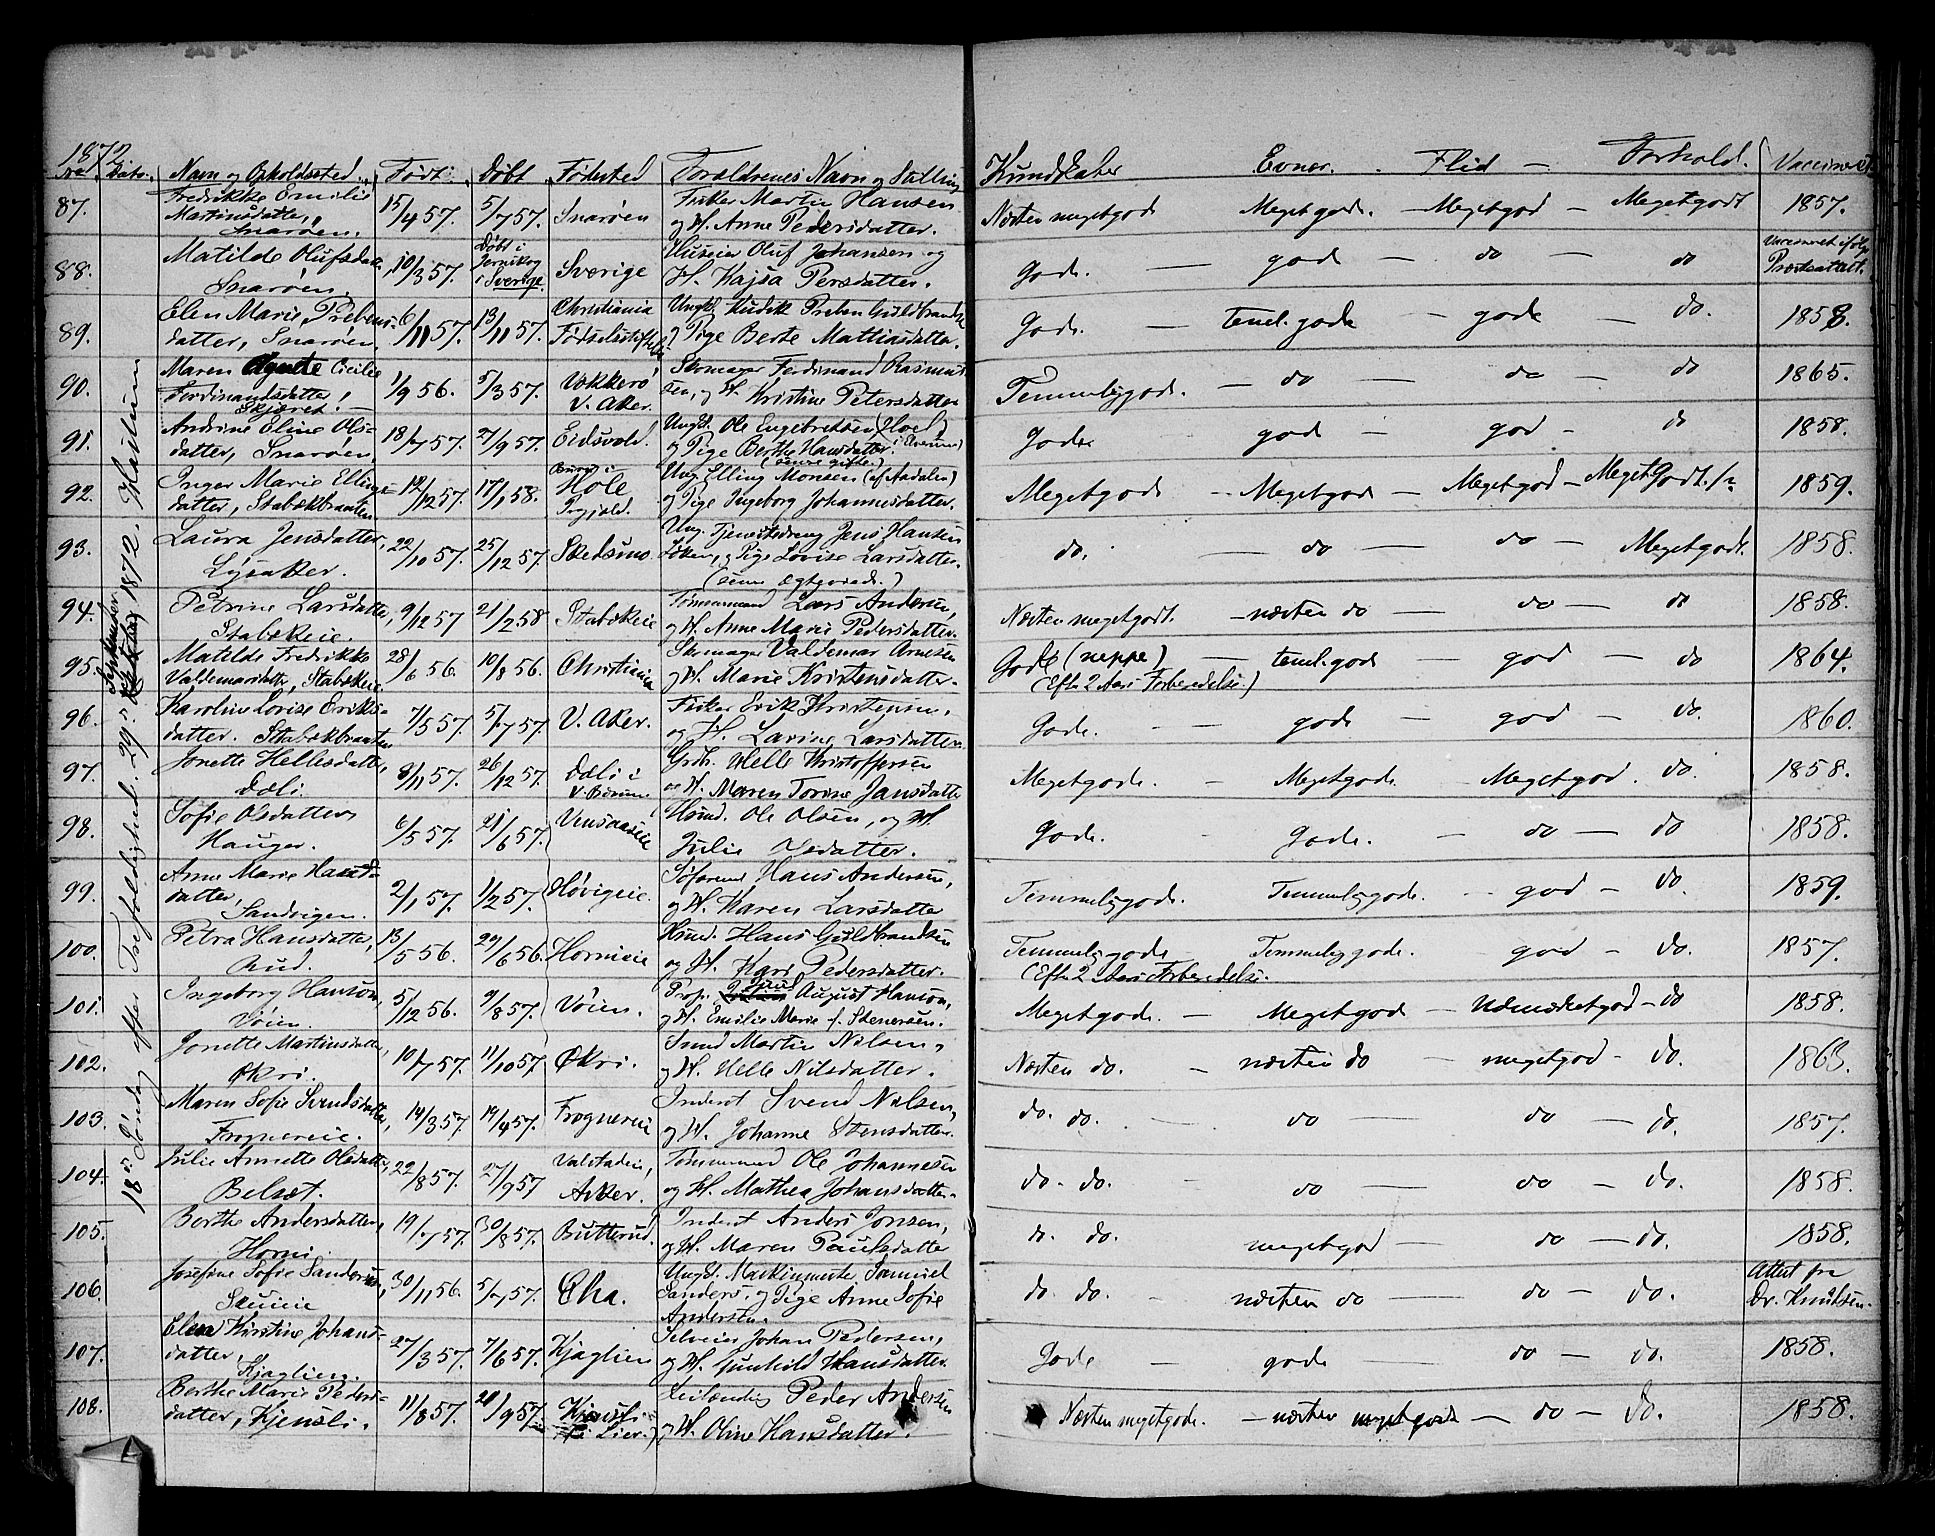 1872
No Dato. Navn og Opholdssted. Født. Døbt Fødested Forældrenes Navn og Stilling Kundskaber Evner. Flid — Forhold. Vaccineret
18de Søndag efter Trefoldighed. 29de September 1872. Haslum
87. Fredrikke Emilie Martinsdatter, Snarøen. 15/4 57. 5/7 57. Snarøen Fisker Martin Hansen og H. Anne Pedersdatter. Næsten megetgode Megetgode. — Megetgod — Megetgodt 1857.
88. Matilde Olufsdatter, Snarøen. 10/3 57. Døbt i Jernskog i Sverige. Sverige Huseier Oluf Johansen og H. Kajsa Persdatter. Gode. — gode — do — do Vaccineret ifølge Præsteattest.
89. Elen Marie Prebensdatter, Snarøen. 6/11 57. 13/11 57. Christiania Fødselsstiftelse Ungk. Kudsk Preben Guldbrandsen og Pige Berte Mathiasdatter. Gode. — teml. gode — gode — do. 1858.
90. Maren Cicilie Ferdinandsdatter, Skjæret. 1/9 56. 5/3 57. Vækkerø V. Aker. Skomager Ferdinand Rasmussen, og H. Kristine Petersdatter Temmeliggode. — do — do — do 1865.
91. Andrine Eline Olsdatter, Snarøen 18/7 57. 27/9 57. Eidsvold. Ungk. Ole Engebretsen (Hoel) og Pige Berthe Hansdatter. (i Elverum) Gode — god — god — do 1858.
92. Inger Marie Ellingsdatter, Stabækbraaten 12/12 57. 17/1 58. Hole Prgjæld. (senere gifte.) Ung. Elling Monsen (af Aadalen) og Pige Ingeborg Johannesdatter. Megetgode — Megetgod — Megetgod — Megetgodt. 1859.
93. Laura Jensdatter, Lysaker. 22/10 57. 25/12 57. Skedsmo Ung. Tjenestedreng Jens Hansen Løken, og Pige Lovise Larsdatter. (senere ægteviede.) do. — do — do — Megetgodt. 1858.
94. Petrine Larsdatter, Stabækeie. 9/12 57 21/2 58 Stabækeie Tømmermand Lars Andersen, og H. Anne Marie Pedersdatter. Næsten megetgodt. — næsten do — do — do 1858.
95. Matilde Fredrikke Valdemarsdatter, Stabækeie 28/6 56. 10/8 56. Christiania Skomager Valdemar Arnesen og H. Marie Kristensdatter. Gode (neppe) — teml. god — god — do 1864.
(Efter 2 Aars Forberedelse.)
96. Karoline Lovise Eriksdatter. Stabækbraaten 7/5 57. 5/7 57. V. Aker. Fisker Erik Kristensen, og H. Lavine Larsdatter. Gode. — gode — god — do. 1860.
97. Jonette Hellesdatter, Dæli. 8/11 57. 26/12 57. Dæli i V. Bærum. Grdbr. Helle Kristoffersen og H. Maren Torine Jansdatter Megetgode. — Megetgode. Megetgod. do. 1858.
98. Sofie Olsdatter, Hauger. 6/5 57. 21/6 57. Vensaaseie Husmd. Ole Olsen, og H. Julie Olsdatter. Gode. — Gode. — do — do 1858.
99. Anne Marie Hansdatter, Sandvigen. 2/1 57. 1/2 57. Høvigeie. Søfarend Hans Andersen, og H. Karen Larsdatter Temmeliggode. Temmeliggode. — god — do. 1859.
100. Petra Hansdatter, Rud. 13/5 56. 29/6 56. Hornieie Husmd. Hans Guldbrandsen og H. Kari Pedersdatter. Temmeliggode Temmeliggode. god — do. 1857.
(Efter 2 Aars Forberedelse.
101. Ingeborg Hanson, Vøien. 5/12 56. 9/8 57. Vøien. Prop. August Hanson, og H. Emilie Marie f. Stenersen. Megetgode. — Megetgod — Udmærketgod — do 1858.
102. Jonette Martinsdatter, Økri. 10/7 57. 11/10 57. Økri. Smed Martin Nilsen, og H. Helle Nilsdatter. Næsten do. — næsten do — megetgod — do. 1863.
103. Maren Sofie Svendsdatter, Frognereie. 14/3 57. 19/4 57. Frognereie Inderst Svend Nilsen, og H. Johanne Stensdatter. do. do. — do — do — do. 1857.
104. Julie Annette Olsdatter, Belset. 22/8 57. 27/9 57 Aker. Tømmermand Ole Johannesen og H. Mathea Johansdatter. do. do. — do — do — do. 1858.
105. Berthe Andersdatter, Horni. 19/7 57. 30/8 57. Butterud. Inderst Anders Jonsen, og H. Maren Paulsdatter do. do. megetgod — do — do. 1858.
106. Josefine Sofie Sandersen, Skuieie 30/11 56. 5/7 57. Cha. Ungk. Maskinmester Samuel Sanders. og Pige Anne Sofie Andersen. do. do. — næsten do — do — do. Attest fra Dr. Knutsen.
107. Elen Kirstine Johansdatter, Kjaglien. 27/3 57. 7/6 57. Kjaglien Selveier Johan Pedersen, og H. Gunhild Hansdatter. Gode — gode — do — do. 1858.
108. Berthe Marie Pedersdatter, Kjensli. 11/8 57. 20/9 57. Kjensli i Lier. Leilænding Peder Andersen og H. Oline Hansdatter. Næsten megetgode. — næsten megetgode — do — do. 1858.